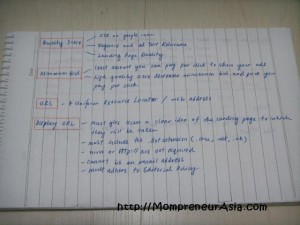 Quality Score - CTR on google.com
- Keyword and ad Text Relevance
- Landing Page Quality
Minimum Bid - Least amount you can pay per click to show your ads
- High quality score decreases minimum bid and price you pay per click.
URL - Uniform Resource Locator / web address
Display URL - Must give users a clear idea of the landing page to which
they will be taken
- must include the extension (.com, .net, .uk)
- www or http:// are not required
- cannot be an email address
- must adhere to Editorial Policy
http://MompreneurAsia.com